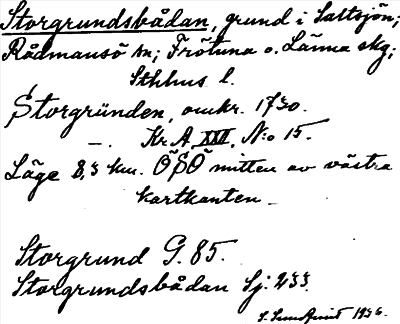 Storgrundsbådan, grund i Saltsjön;
Rådmansö sn; Frötuna o. Länna skg;
Sthlms l.
Storgründen, omkr. 1730.
—. Kr. A. XXII, N:o 15.
Läge 8,5 km. ÖSÖ mitten av västra
kartkanten.
Storgrund G. 85.
Storgrundsbådan Sj: 233.
1936.